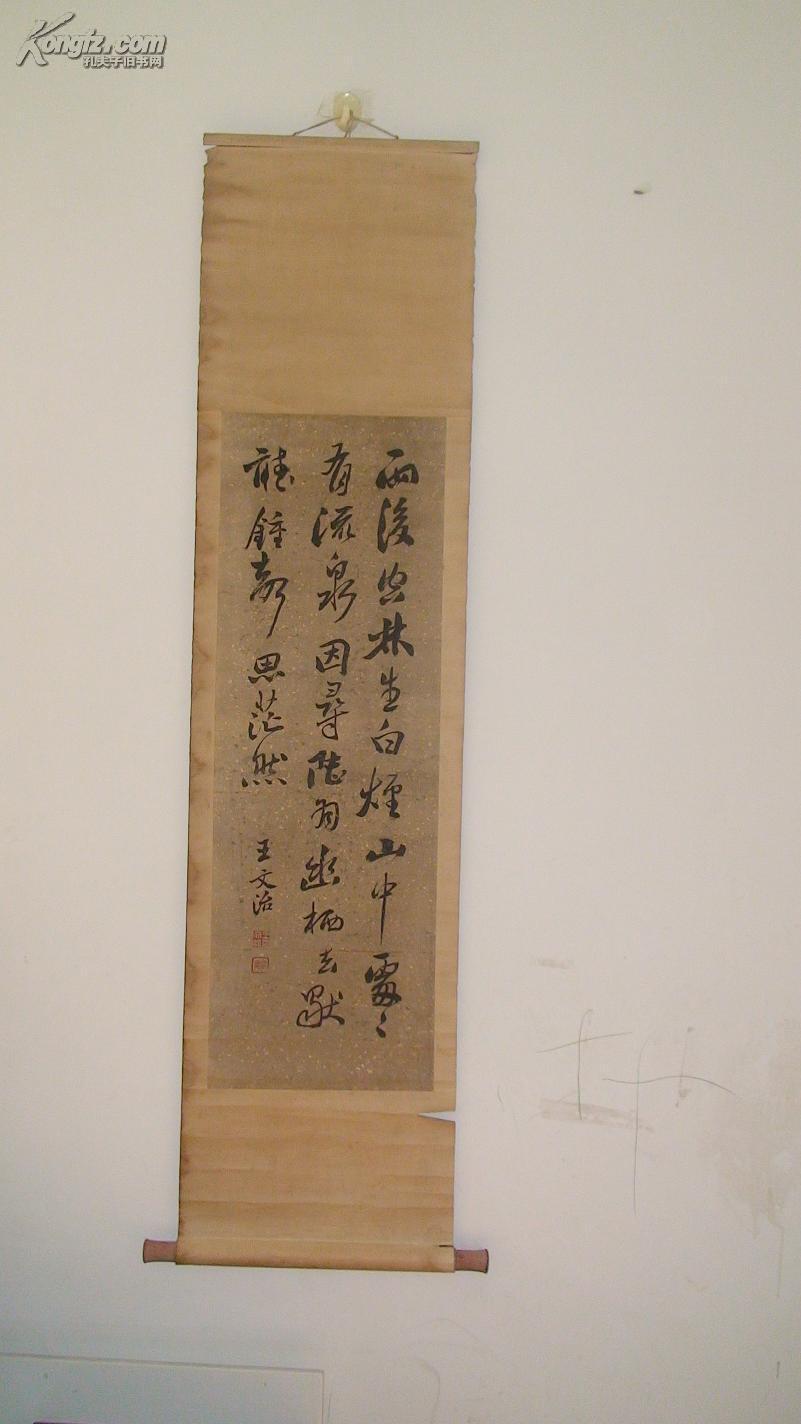 Kongfz.com
孔夫子旧书网
雨後空林生白煙山中處〻
有流泉因尋陸羽幽栖去獸
聽鍾聲思茫然
王文治